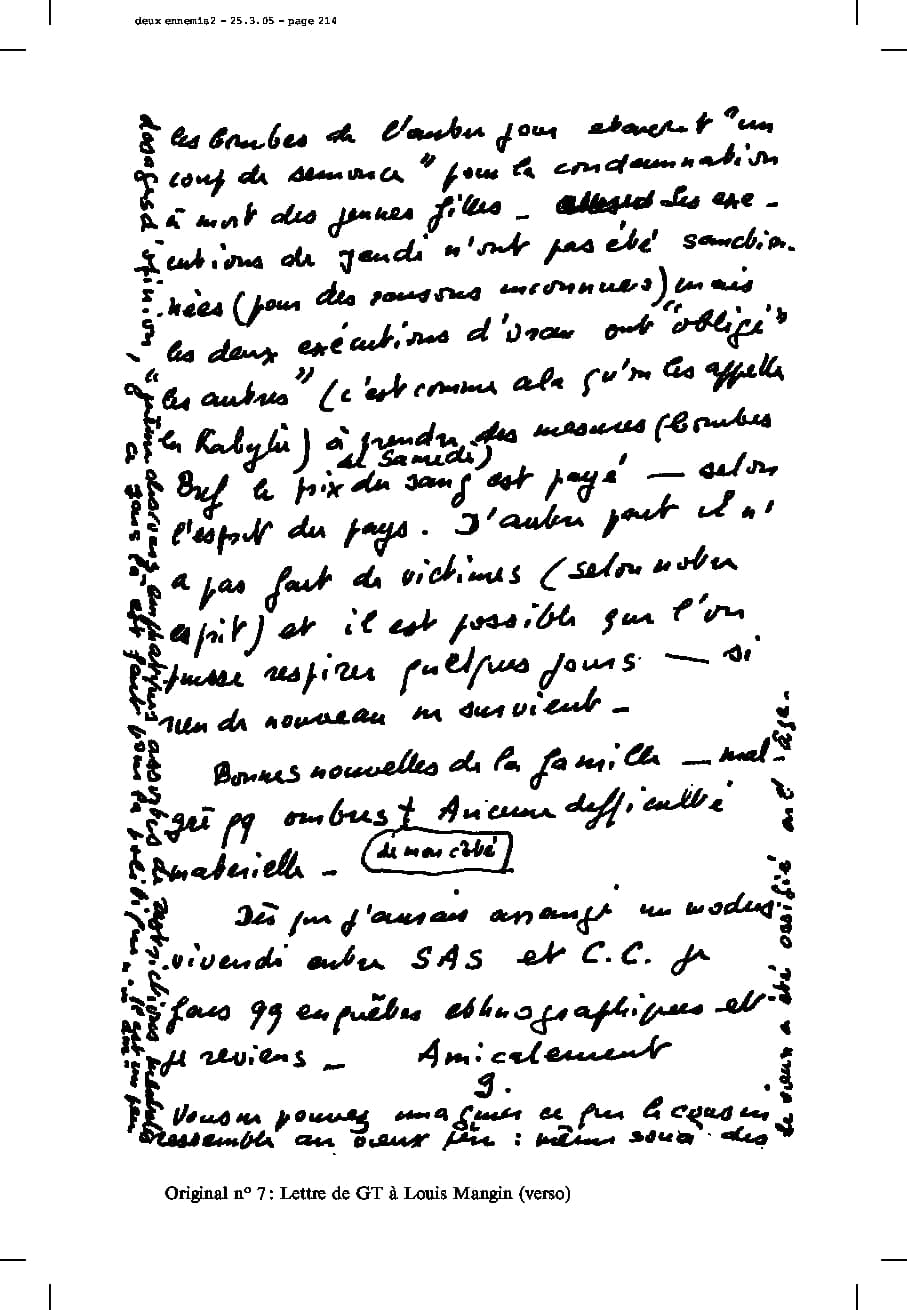 deux ennemis2 - 25.3.05 - page 214
les bombes de l'autre jour étaient "un
coup de semonce" pour la condamnation
à mort des jeunes filles - Les exé-
cutions de jeudi n'ont pas été sanction-
nées (pour des raisons inconnues) mais
les deux exécutions d'Oran ont "obligé"
les autres" (c'est comme cela qu'on les appelle
en Kabylie) à prendre des mesures (bombes
de Samedi)
Bref le prix du sang est payé — selon
l'esprit du pays. D'autre part il n'y
a pas fait de victimes (selon notre
esprit) et il est possible que l'on
puisse respirer quelques jours — si
rien de nouveau ne survient -
Bonnes nouvelles de la famille — mal-
gré pq ombres + Aucune difficulté
matérielle - de mon côté
Dès que j'aurais arrangé un modus
vivendi entre SAS et C.C. je
fais qq enquêtes ethnographiques et
je reviens - Amicalement
g.
Vous ne pouvez imaginer ce que le cousin
ressemble au vieux père : même souci des
dosages d'opinion, même
assorties de restrictions
ce gars là est fait pour la politique. Il est un peu
le vieux a été ossifié avec l'âge.
Original nº 7 : Lettre de GT à Louis Mangin (verso)